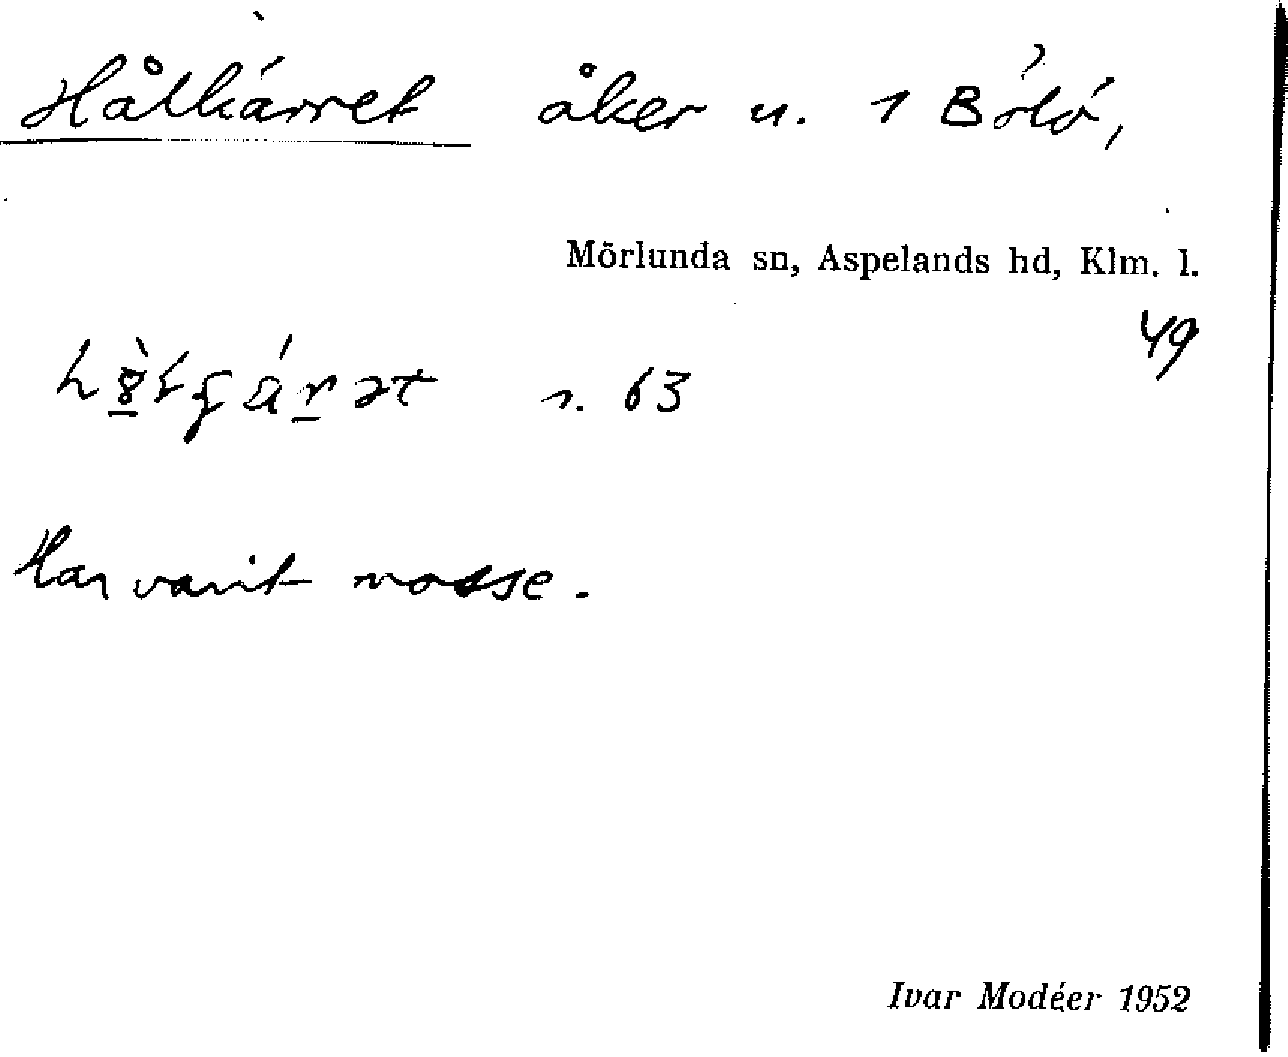 Hålkärret åker u. 1 Bölö,
Mörlunda sn, Aspelands hd, Klm. l.
49
s. 63
Har varit mosse.
Ivar Modéer 1952